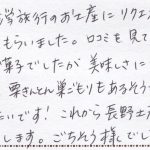 労旅行のお土産にリクエ
もらいました。口コミを見て
菓子でしたが美味しさに
栗きんとん巣ごもりもあるそう
たいです！これから長野土産
します。ごちそう様でし